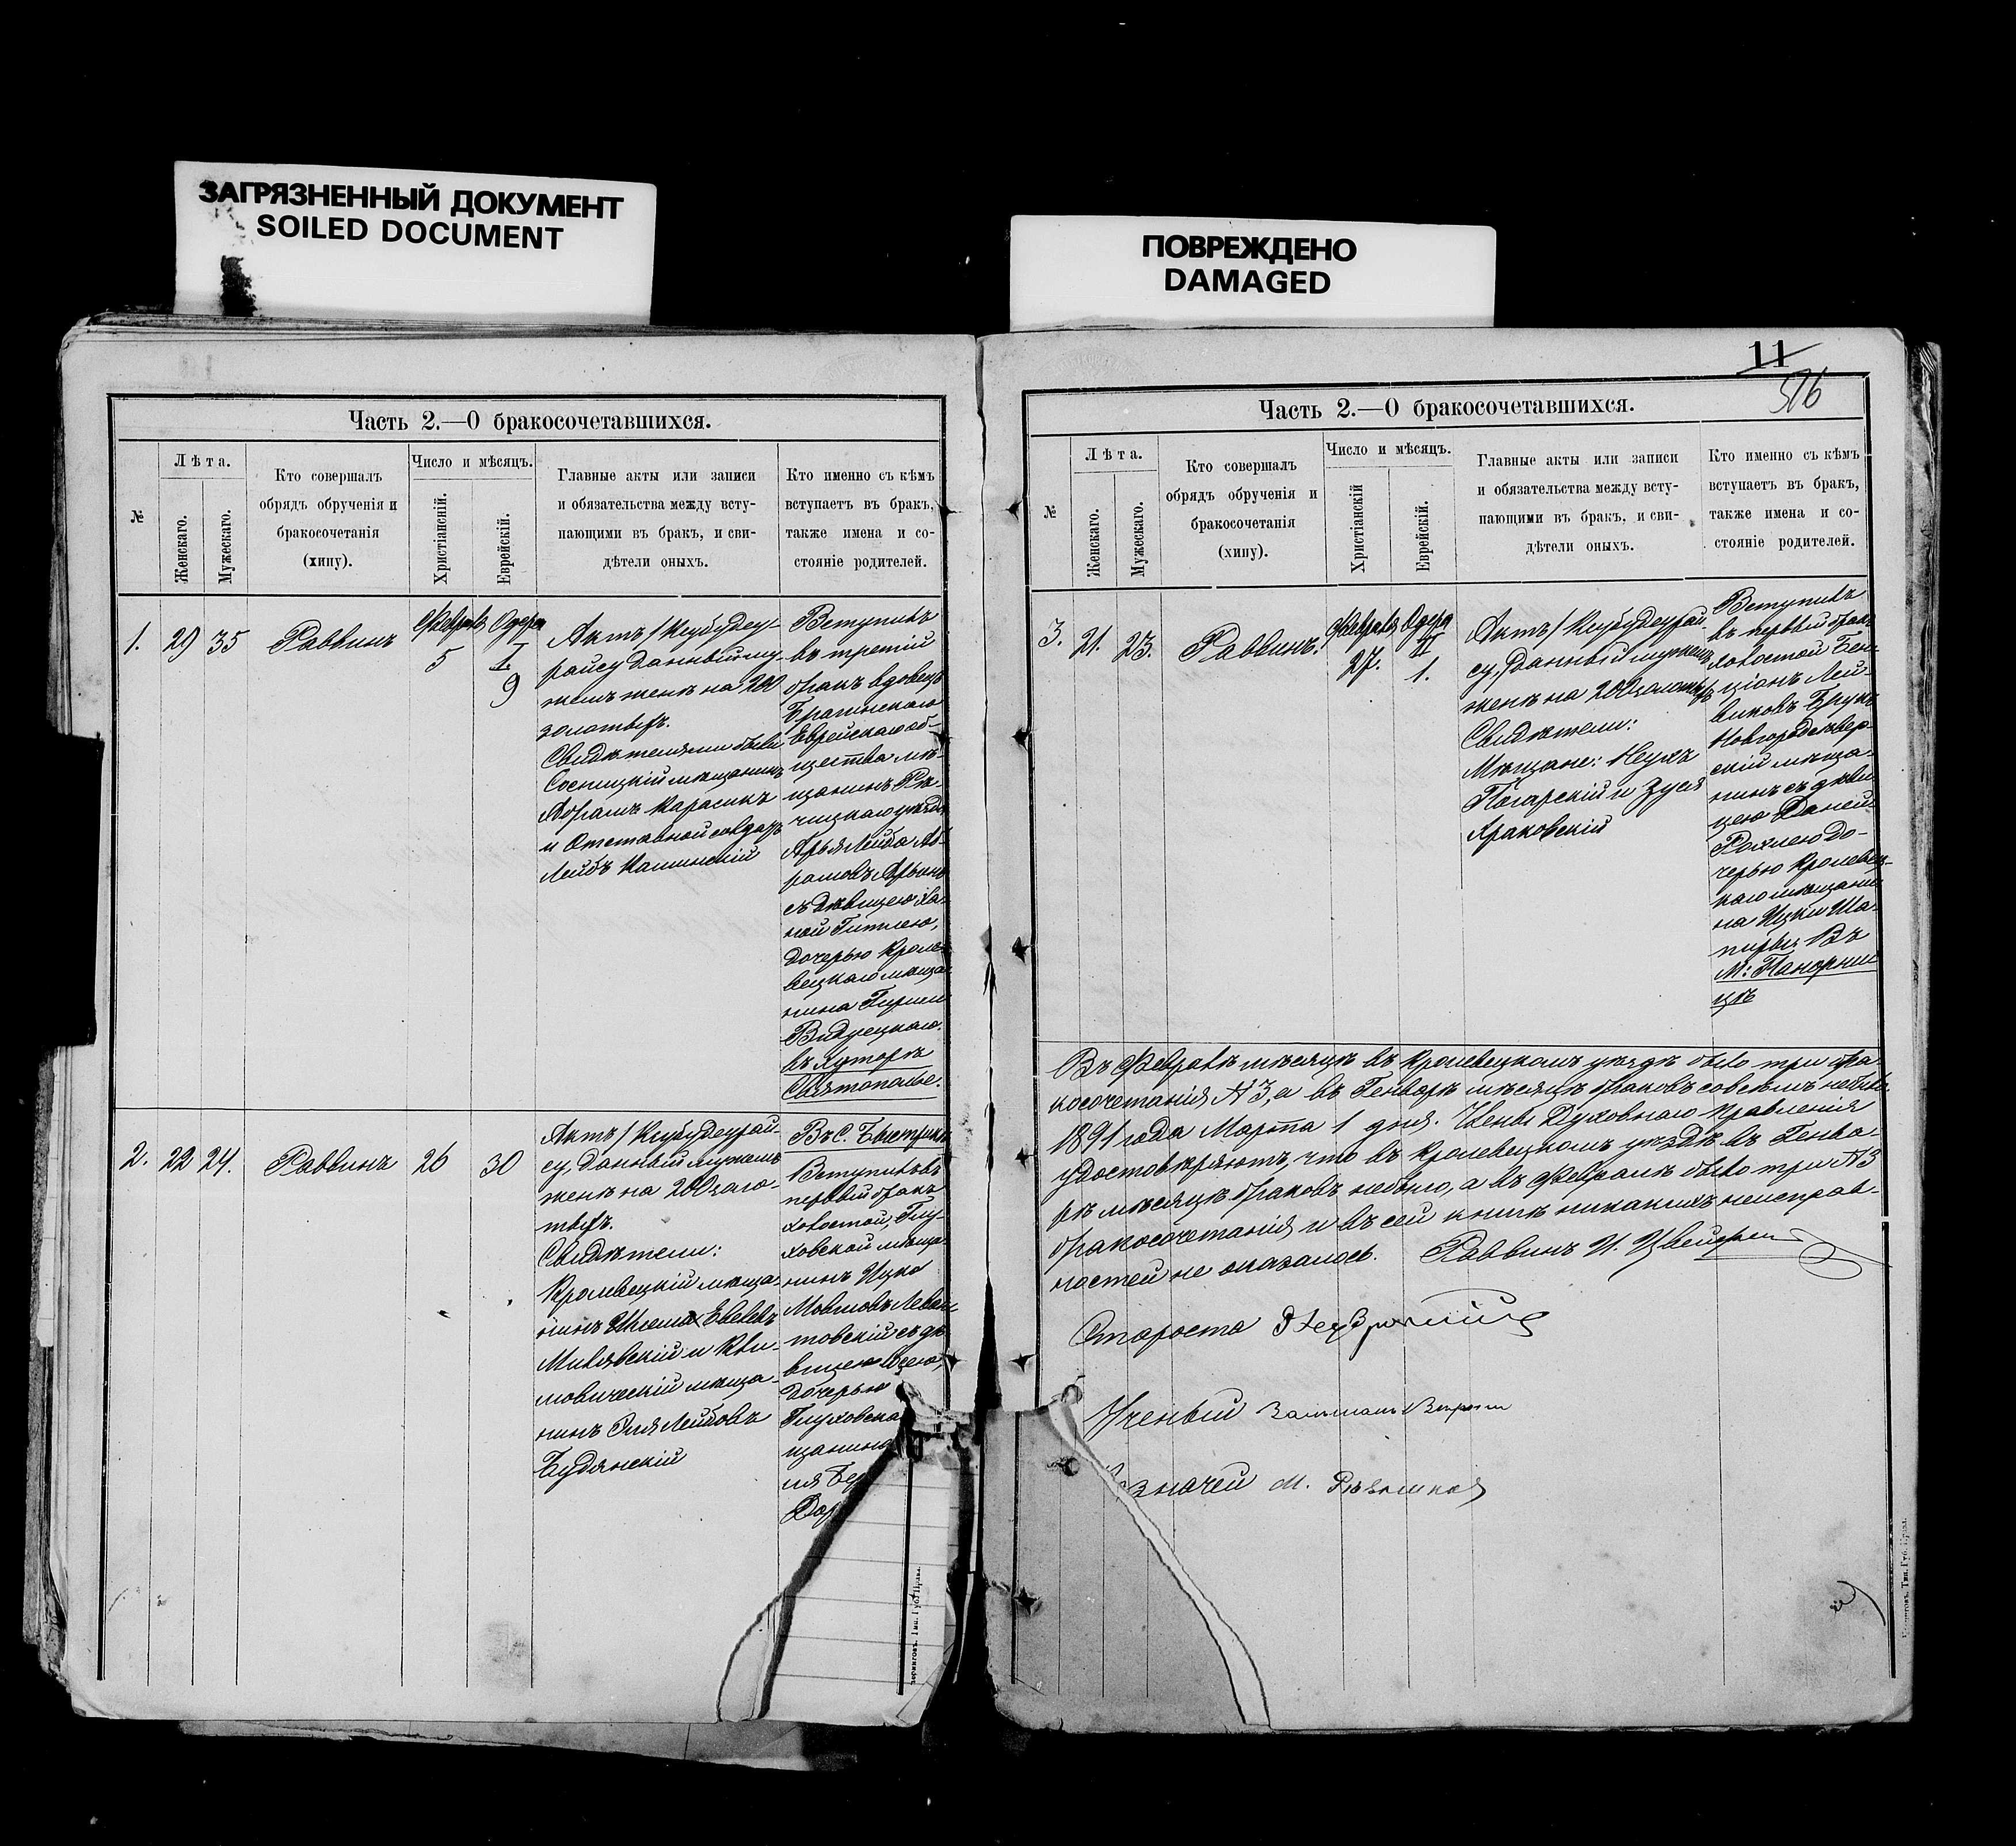 ЗАГРЯЗНЕННЫЙ ДОКУМЕНТ
SOILED DOCUMENT
ПОВРЕЖДЕНО
DAMAGED
Часть 2.—О бракосочетавшихся.
№
Лѣта.
Женскаго.
Мужескаго.
Кто совершалъ
обрядъ обрученія и
бракосочетанія
(хипу).
Число и мѣсяцъ.
Христіанскій.
Еврейскій.
Главные акты или записи
и обязательства между всту-
пающими въ бракъ, и сви-
дѣтели оныхъ.
Кто именно съ кѣмъ
вступаетъ въ бракъ,
также имена и со-
стояніе родителей.
1.
29
35
Раввинъ
5
I
9
Актъ / Кеубудеу-
райсу данный му-
жемъ женѣ на 200
золотыхъ.
Свидѣтелями были
Сосницкій мѣщанинъ
Абрамъ Карасикъ
и Отставной солдатъ
Лейбъ Каминскій
Вступилъ
въ третій
бракъ вдовецъ
Брагинскаго
Еврейскаго об-
щества мѣ-
щанинъ Рѣ-
чицкаго уѣзда
Арья Лейба Аб-
рамовъ
съ дѣвицею Ха-
ной Гитлею,
дочерью Кроле-
вецкаго мѣща-
нина
въ Хуторѣ
Святополье.
2.
22
24.
Раввинъ
26
30
Актъ / Кеубудеурай-
су, данный мужемъ
женѣ на 200 золо-
тыхъ.
Свидѣтели:
Кролевецкій мѣща-
нинъ
и Кли-
мовическій мѣща-
нинъ Лейбовъ
Будянскій
Въ С. Быстрикѣ
Вступилъ въ
первый бракъ
холостой, Глу-
ховской мѣща-
нинъ Ицко
Мовшовъ
съ дѣ-
вицею
дочерью
Глуховска
щанина
Черниговъ. Тип. Губ. Правл.
11
576
Часть 2.—О бракосочетавшихся.
№
Лѣта.
Женскаго.
Мужескаго.
Кто совершалъ
обрядъ обрученія и
бракосочетанія
(хипу).
Число и мѣсяцъ.
Христіанскій
Еврейскій.
Главные акты или записи
и обязательства между всту-
пающими въ бракъ, и сви-
дѣтели оныхъ.
Кто именно съ кѣмъ
вступаетъ въ бракъ,
также имена и со-
стояніе родителей.
3.
21.
23.
Раввинъ.
27.
II
1.
Актъ / Кеубудеурай-
су, данный мужемъ
женѣ на 200 золотыхъ
Свидѣтели:
Мѣщане:
Погарскій и Зуся
Краковскій
Вступилъ
въ первый бракъ
холостой Бен-
ціонъ Лей-
виковъ Брукъ
Новгородсѣвер-
скій мѣща-
нинъ съ дѣви-
цею
дочерью Кролевец-
каго мѣщани-
на Ицки Ша-
пиры. Въ
М:
Въ Февралѣ мѣсяцѣ въ Кролевецкомъ уѣздѣ было три бра-
косочетанія №3, а въ Генварѣ мѣсяцѣ браковъ совсѣмъ не было
1891 года Марта 1 дня. Члены Духовнаго Правленія
удостовѣряютъ, что въ Кролевецкомъ уѣздѣ въ Генва-
рѣ мѣсяцѣ браковъ небыло, а въ Февралѣ было три №3
бракосочетанія и въ сей книгѣ никакихъ неисправ-
ностей не оказалось. Раввинъ И.
Староста
Ученый
М.
Черниговъ. Тип. Губ. Правл.